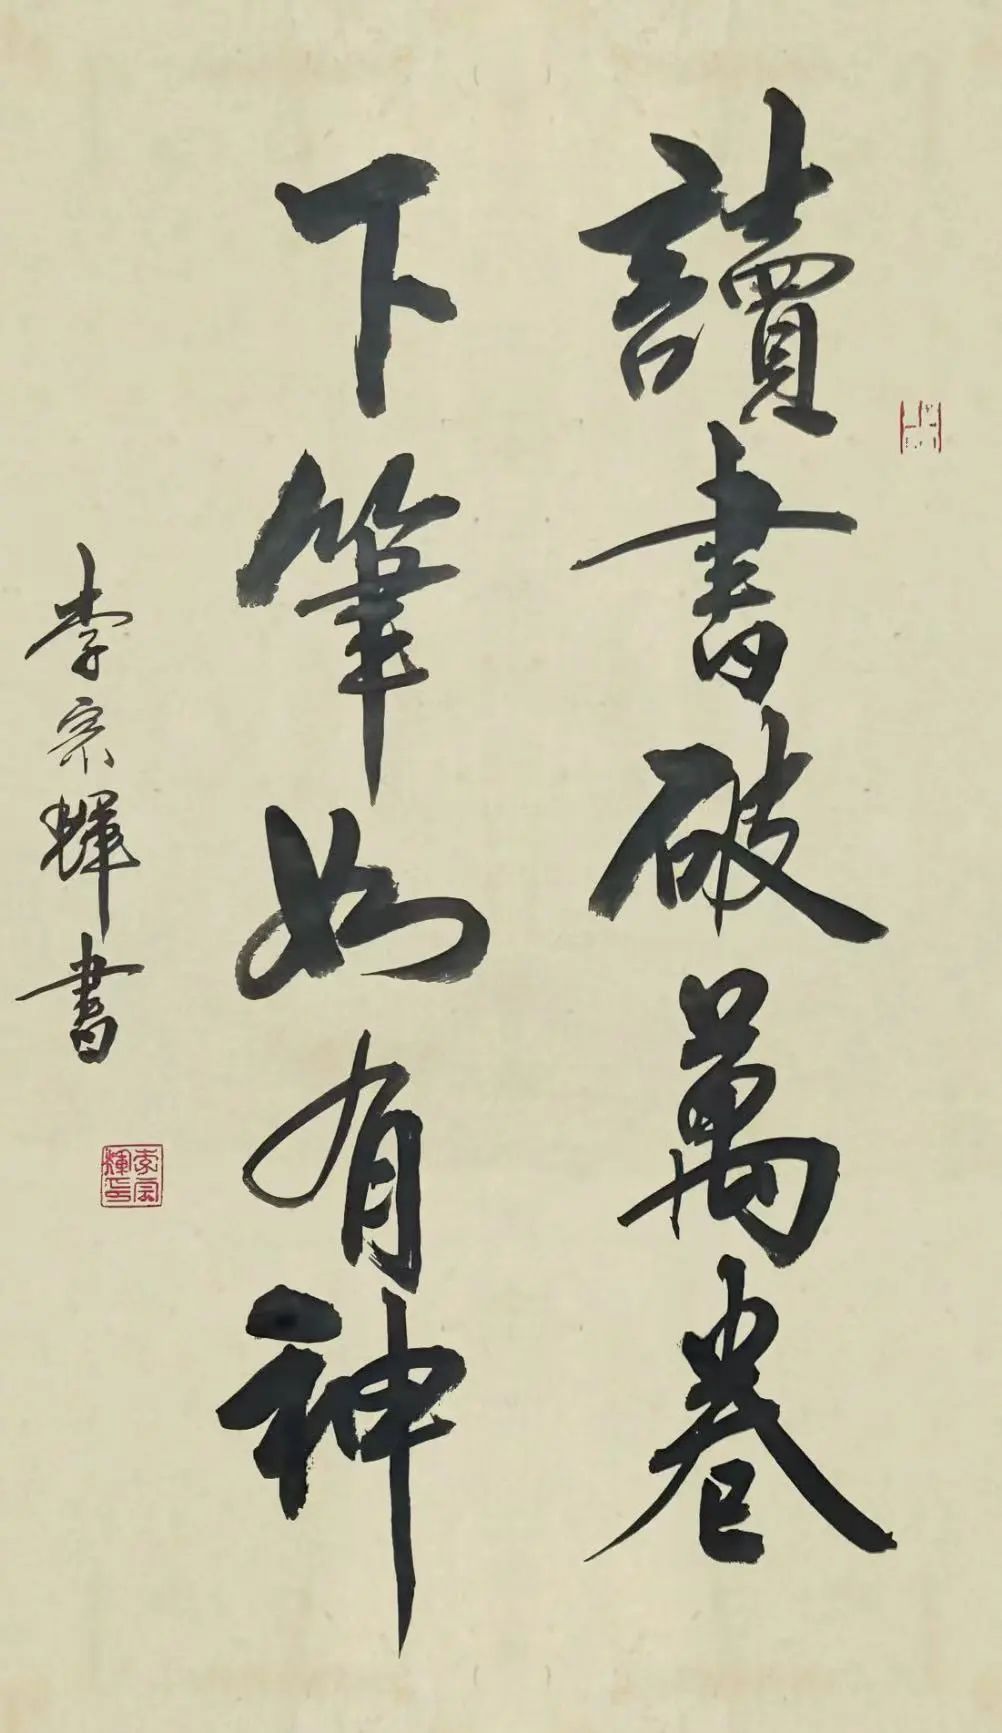 讀書破萬卷
下筆如有神
李宗輝書
李宗輝印